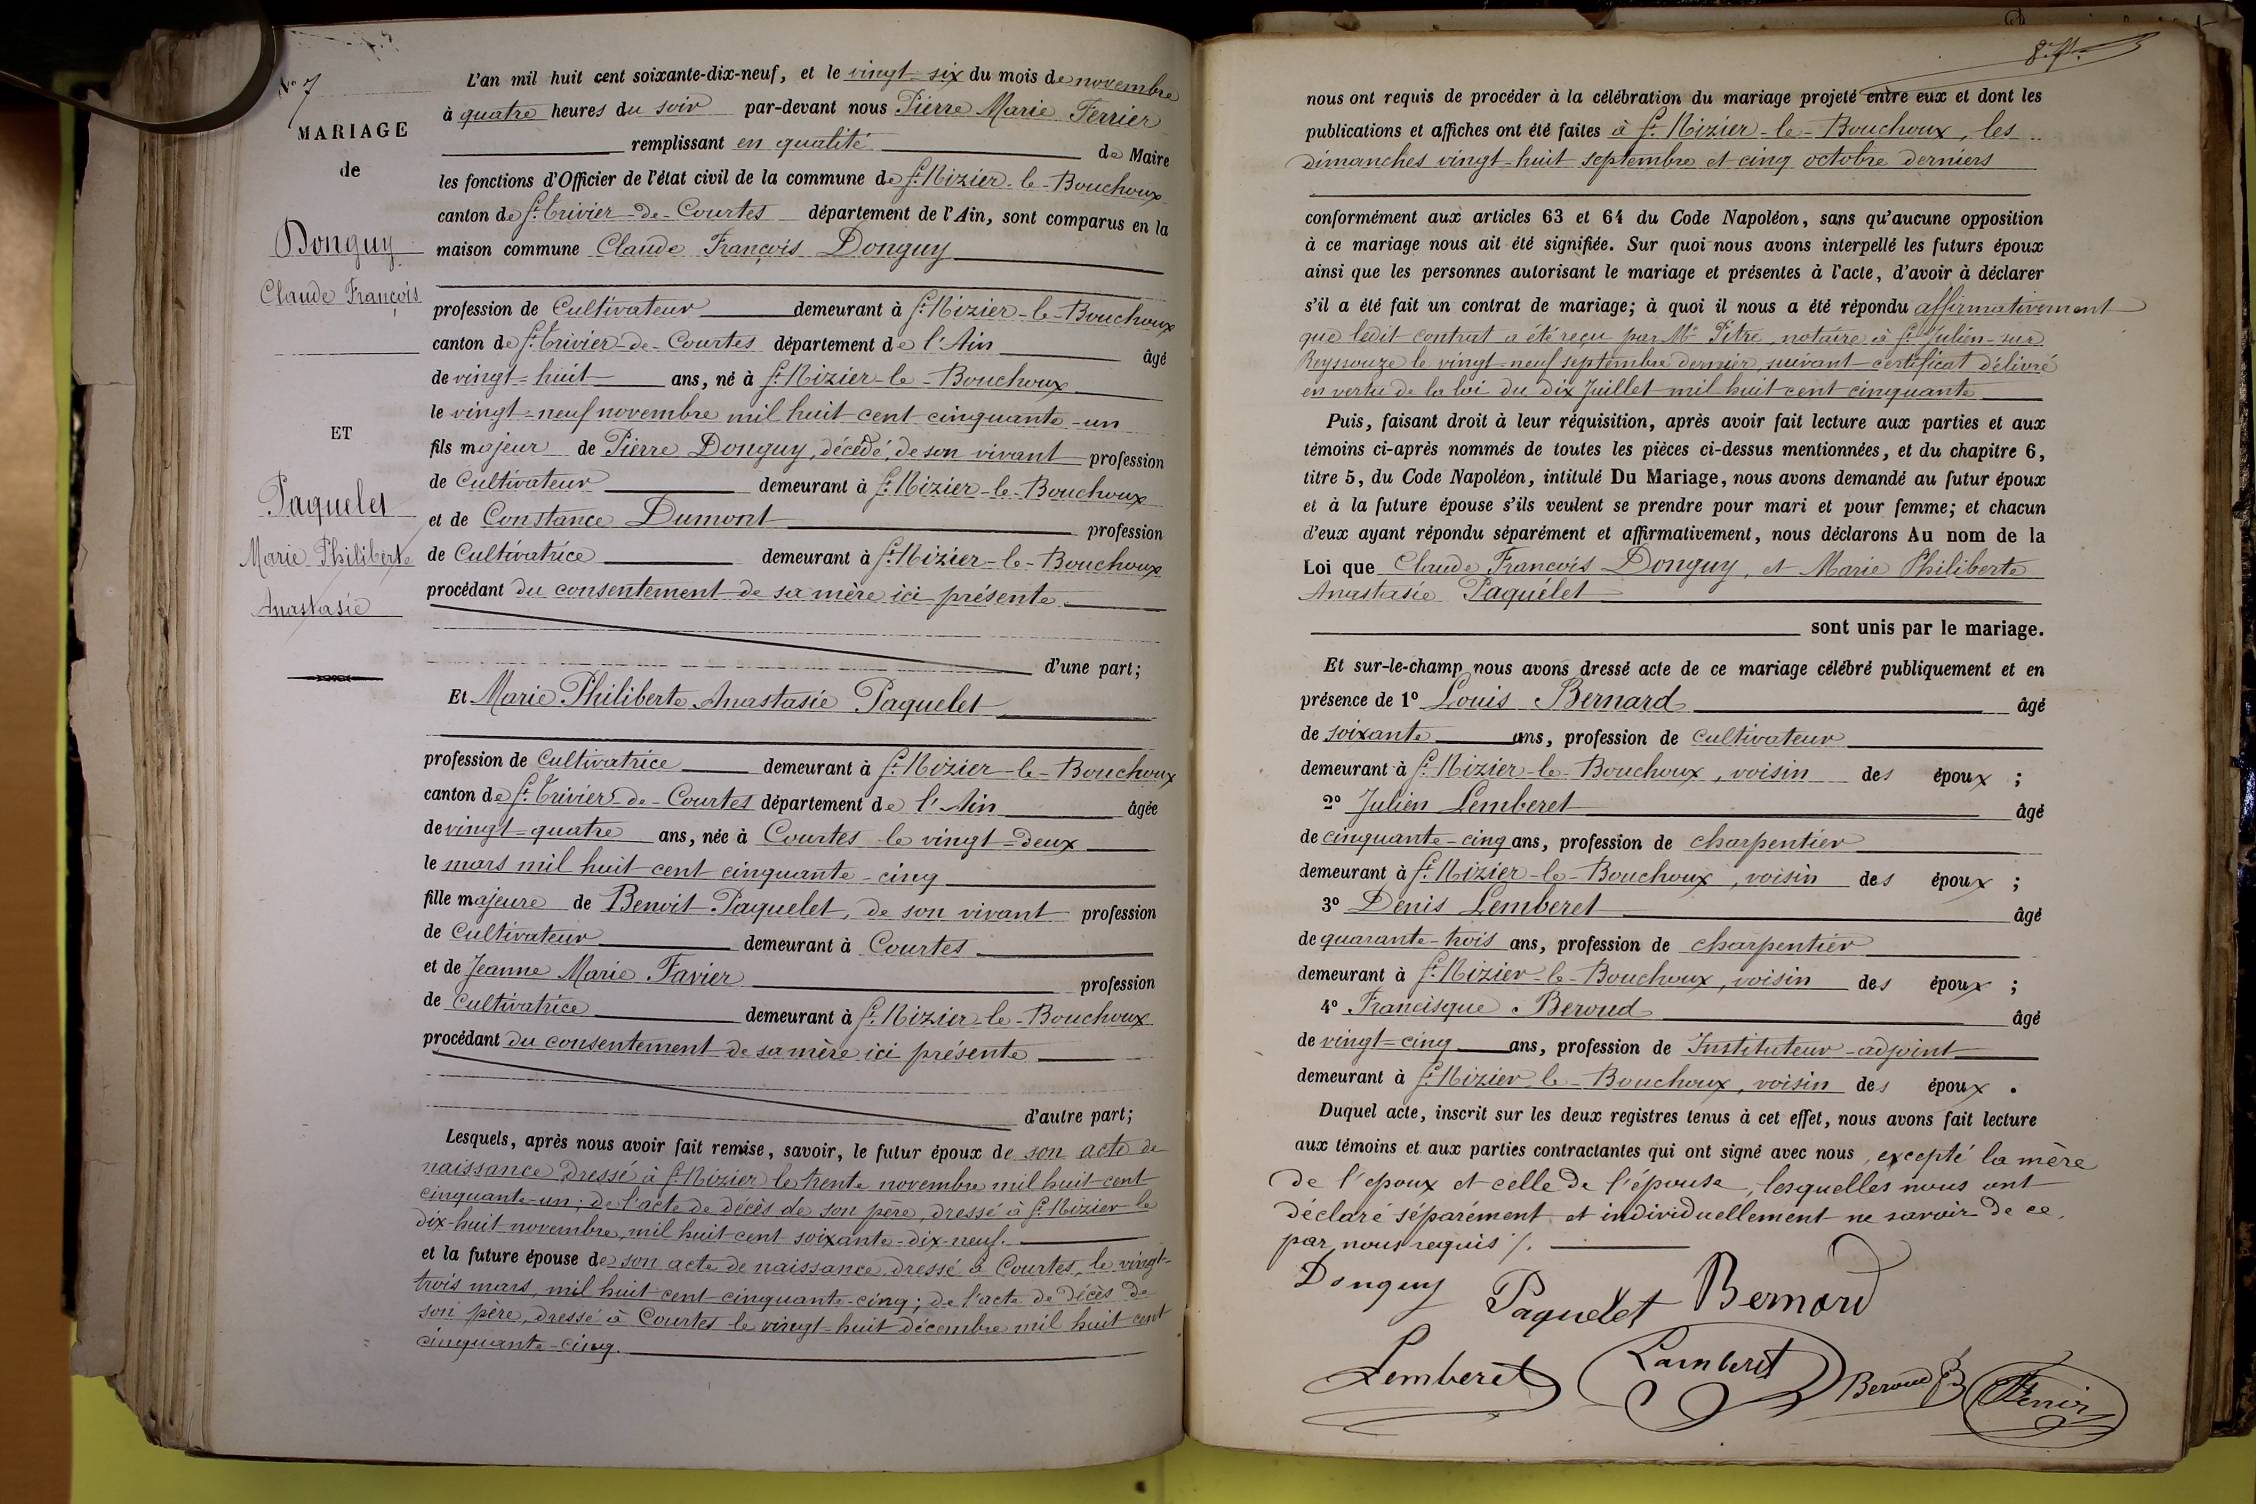 N° 7
MARIAGE
de
Donguy
Claude François
ET
Paquelet
Marie Philiberte
Anastasie
L'an mil huit cent soixante-dix-neuf, et le vingt-six du mois de novembre
à quatre heures du soir par-devant nous Pierre Marie Ferrier
remplissant en qualité de Maire
les fonctions d'Officier de l'état civil de la commune de St Nizier-le-Bouchoux
canton de St Trivier-de-Courtes département de l'Ain, sont comparus en la
maison commune Claude François Donguy
profession de Cultivateur demeurant à St Nizier-le-Bouchoux
canton de St Trivier-de-Courtes département de l'Ain âgé
de vingt-huit ans, né à St Nizier-le-Bouchoux
le vingt-neuf novembre mil huit cent cinquante-un
fils majeur de Pierre Donguy, décédé, de son vivant profession
de Cultivateur demeurant à St Nizier-le-Bouchoux
et de Constance Dumont profession
de Cultivatrice demeurant à St Nizier-le-Bouchoux
procédant du consentement de sa mère ici présente
d'une part;
Et Marie Philiberte Anastasie Paquelet
profession de Cultivatrice demeurant à St Nizier-le-Bouchoux
canton de St Trivier-de-Courtes département de l'Ain âgée
de vingt-quatre ans, née à Courtes le vingt-deux
le mars mil huit cent cinquante-cinq
fille majeure de Benoit Paquelet, de son vivant profession
de Cultivateur demeurant à Courtes
et de Jeanne Marie Favier profession
de Cultivatrice demeurant à St Nizier-le-Bouchoux
procédant du consentement de sa mère ici présente
d'autre part;
Lesquels, après nous avoir fait remise, savoir, le futur époux de son acte de
naissance dressé à St Nizier le trente novembre mil huit cent
cinquante-un; de l'acte de décès de son père, dressé à St Nizier le
dix-huit novembre, mil huit cent soixante-dix-neuf.
et la future épouse de son acte de naissance dressé à Courtes, le vingt-
trois mars, mil huit cent cinquante-cinq; de l'acte de décès de
son père, dressé à Courtes le vingt-huit décembre mil huit cent
cinquante-cinq.
nous ont requis de procéder à la célébration du mariage projeté entre eux et dont les
publications et affiches ont été faites à St Nizier-le-Bouchoux, les
dimanches vingt-huit septembre et cinq octobre derniers
conformément aux articles 63 et 64 du Code Napoléon, sans qu'aucune opposition
à ce mariage nous ait été signifiée. Sur quoi nous avons interpellé les futurs époux
ainsi que les personnes autorisant le mariage et présentes à l'acte, d'avoir à déclarer
s'il a été fait un contrat de mariage; à quoi il nous a été répondu affirmativement
que ledit contrat a été reçu par Me Pitre, notaire à St Julien-sur
Reyssouze le vingt-neuf septembre dernier, suivant certificat délivré
en vertu de la loi du dix Juillet mil huit cent cinquante
Puis, faisant droit à leur réquisition, après avoir fait lecture aux parties et aux
témoins ci-après nommés de toutes les pièces ci-dessus mentionnées, et du chapitre 6,
titre 5, du Code Napoléon, intitulé Du Mariage, nous avons demandé au futur époux
et à la future épouse s'ils veulent se prendre pour mari et pour femme; et chacun
d'eux ayant répondu séparément et affirmativement, nous déclarons Au nom de la
Loi que Claude François Donguy, et Marie Philiberte
Anastasie Paquelet
sont unis par le mariage.
Et sur-le-champ nous avons dressé acte de ce mariage célébré publiquement et en
présence de 1° Louis Bernard âgé
de soixante ans, profession de cultivateur
demeurant à St Nizier-le-Bouchoux, voisin des époux ;
2° Julien Lemberet âgé
de cinquante-cinq ans, profession de charpentier
demeurant à St Nizier-le-Bouchoux, voisin des époux ;
3° Denis Lemberet âgé
de quarante-trois ans, profession de charpentier
demeurant à St Nizier-le-Bouchoux, voisin des époux ;
4° Francisque Beroud âgé
de vingt-cinq ans, profession de Instituteur-adjoint
demeurant à St Nizier-le-Bouchoux, voisin des époux .
Duquel acte, inscrit sur les deux registres tenus à cet effet, nous avons fait lecture
aux témoins et aux parties contractantes qui ont signé avec nous, excepté la mère
de l'époux et celle de l'épouse, lesquelles nous ont
déclaré séparément et individuellement ne savoir de ce,
par nous requis %.
Donguy Paquelet Bernard
Lemberet Lamberet Beroud Ferrier